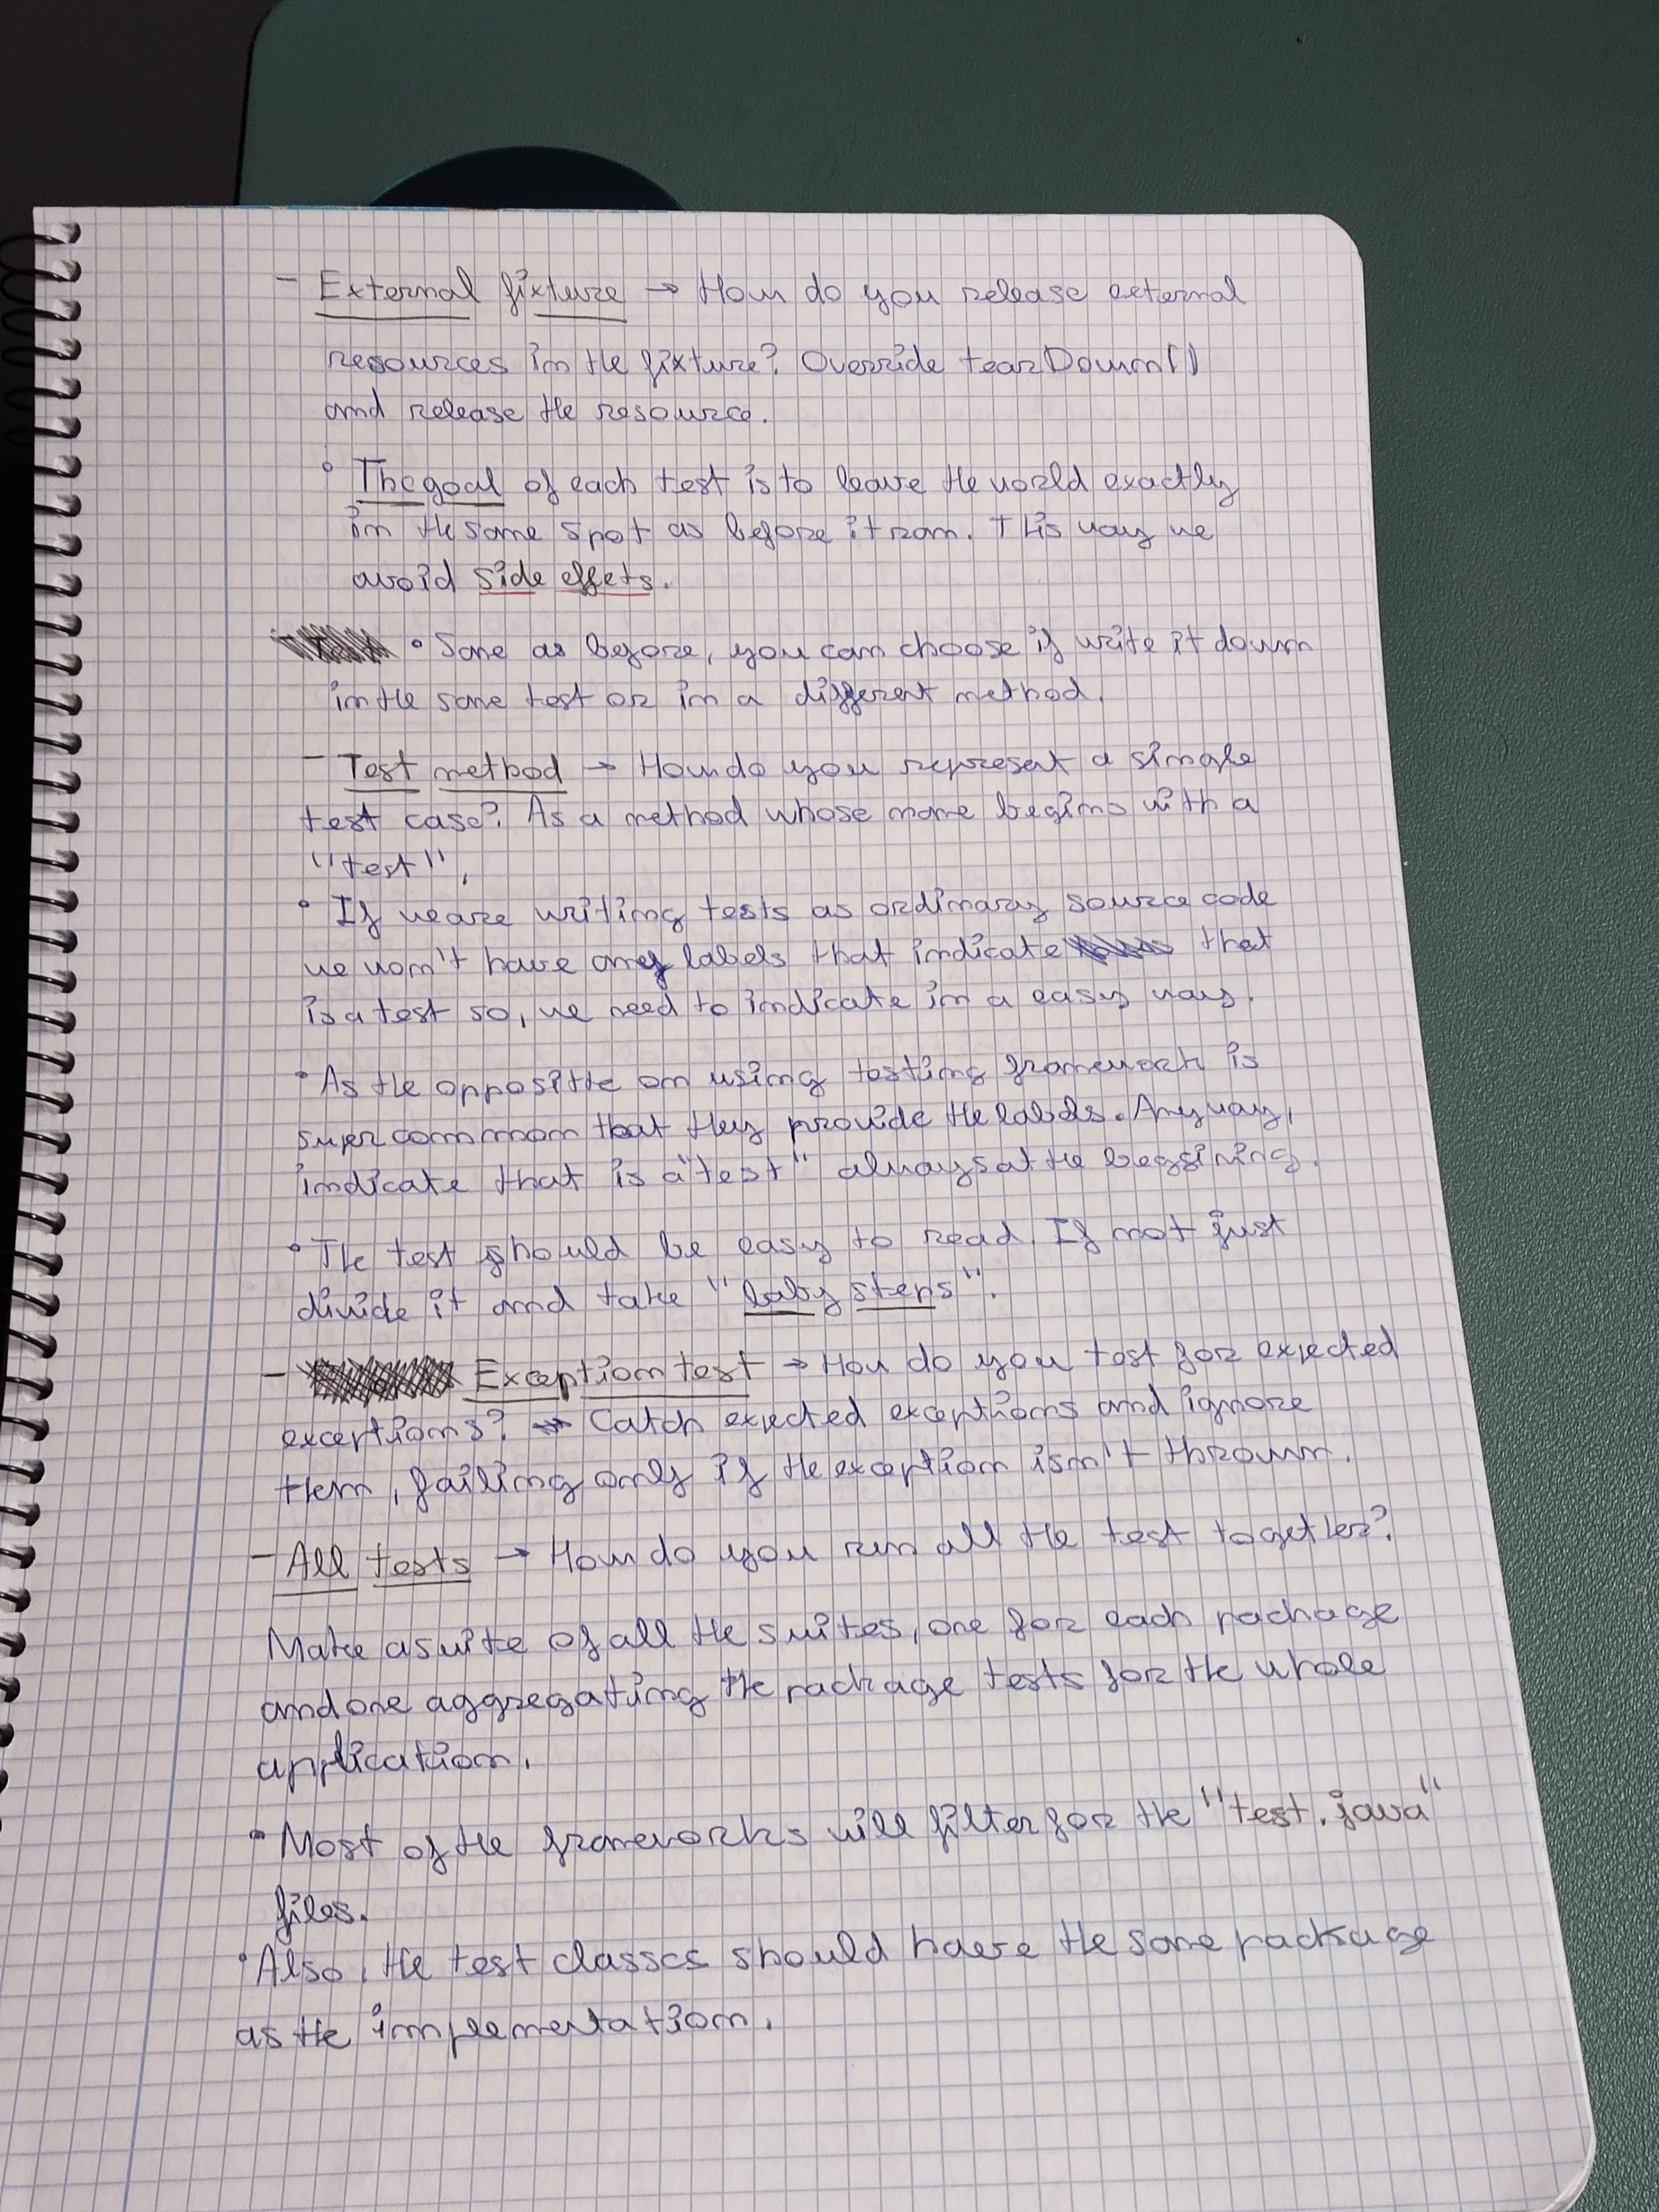 - External fixture → How do you release external
resources in the fixture? Override tearDown()
and release the resource.
• The goal of each test is to leave the world exactly
in the same spot as before it ran. This way we
avoid side effets.
• Same as before, you can choose if write it down
in the same test or in a different method.
- Test method → How do you represent a single
test case? As a method whose name begins with a
"test",
• If we are writing tests as ordinary source code
we won't have any labels that indicate that
is a test so, we need to indicate in a easy way.
• As the oppositte on using testing framework is
super common that they provide the labels. Anyway,
indicate that is a "test" always at the beggining.
• The test should be easy to read. If not just
divide it and take "baby steps".
- Exception test → How do you test for expected
exceptions? → Catch expected exceptions and ignore
them, failing only if the exception isn't thrown.
- All tests → How do you run all the test together?
Make a suite of all the suites, one for each package
and one aggregating the package tests for the whole
application.
• Most of the frameworks will filter for the "test.java"
files.
• Also, the test classes should have the same package
as the implementation.